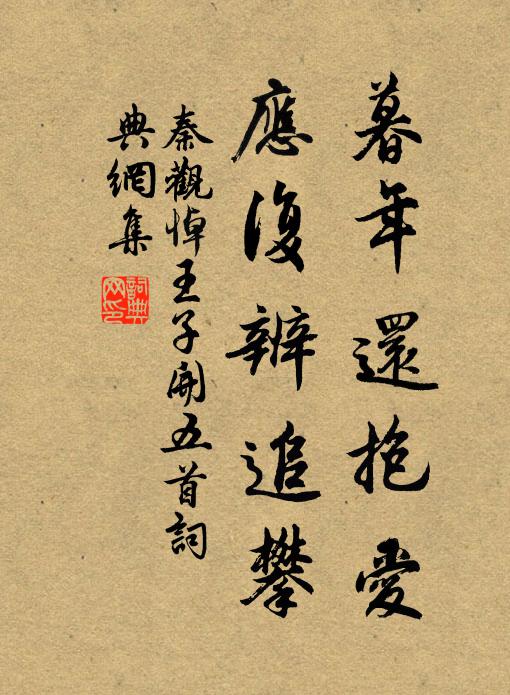 暮年還抱愛
應復辨追攀
秦觀悼王子開五首詞
典網集
詞典網印